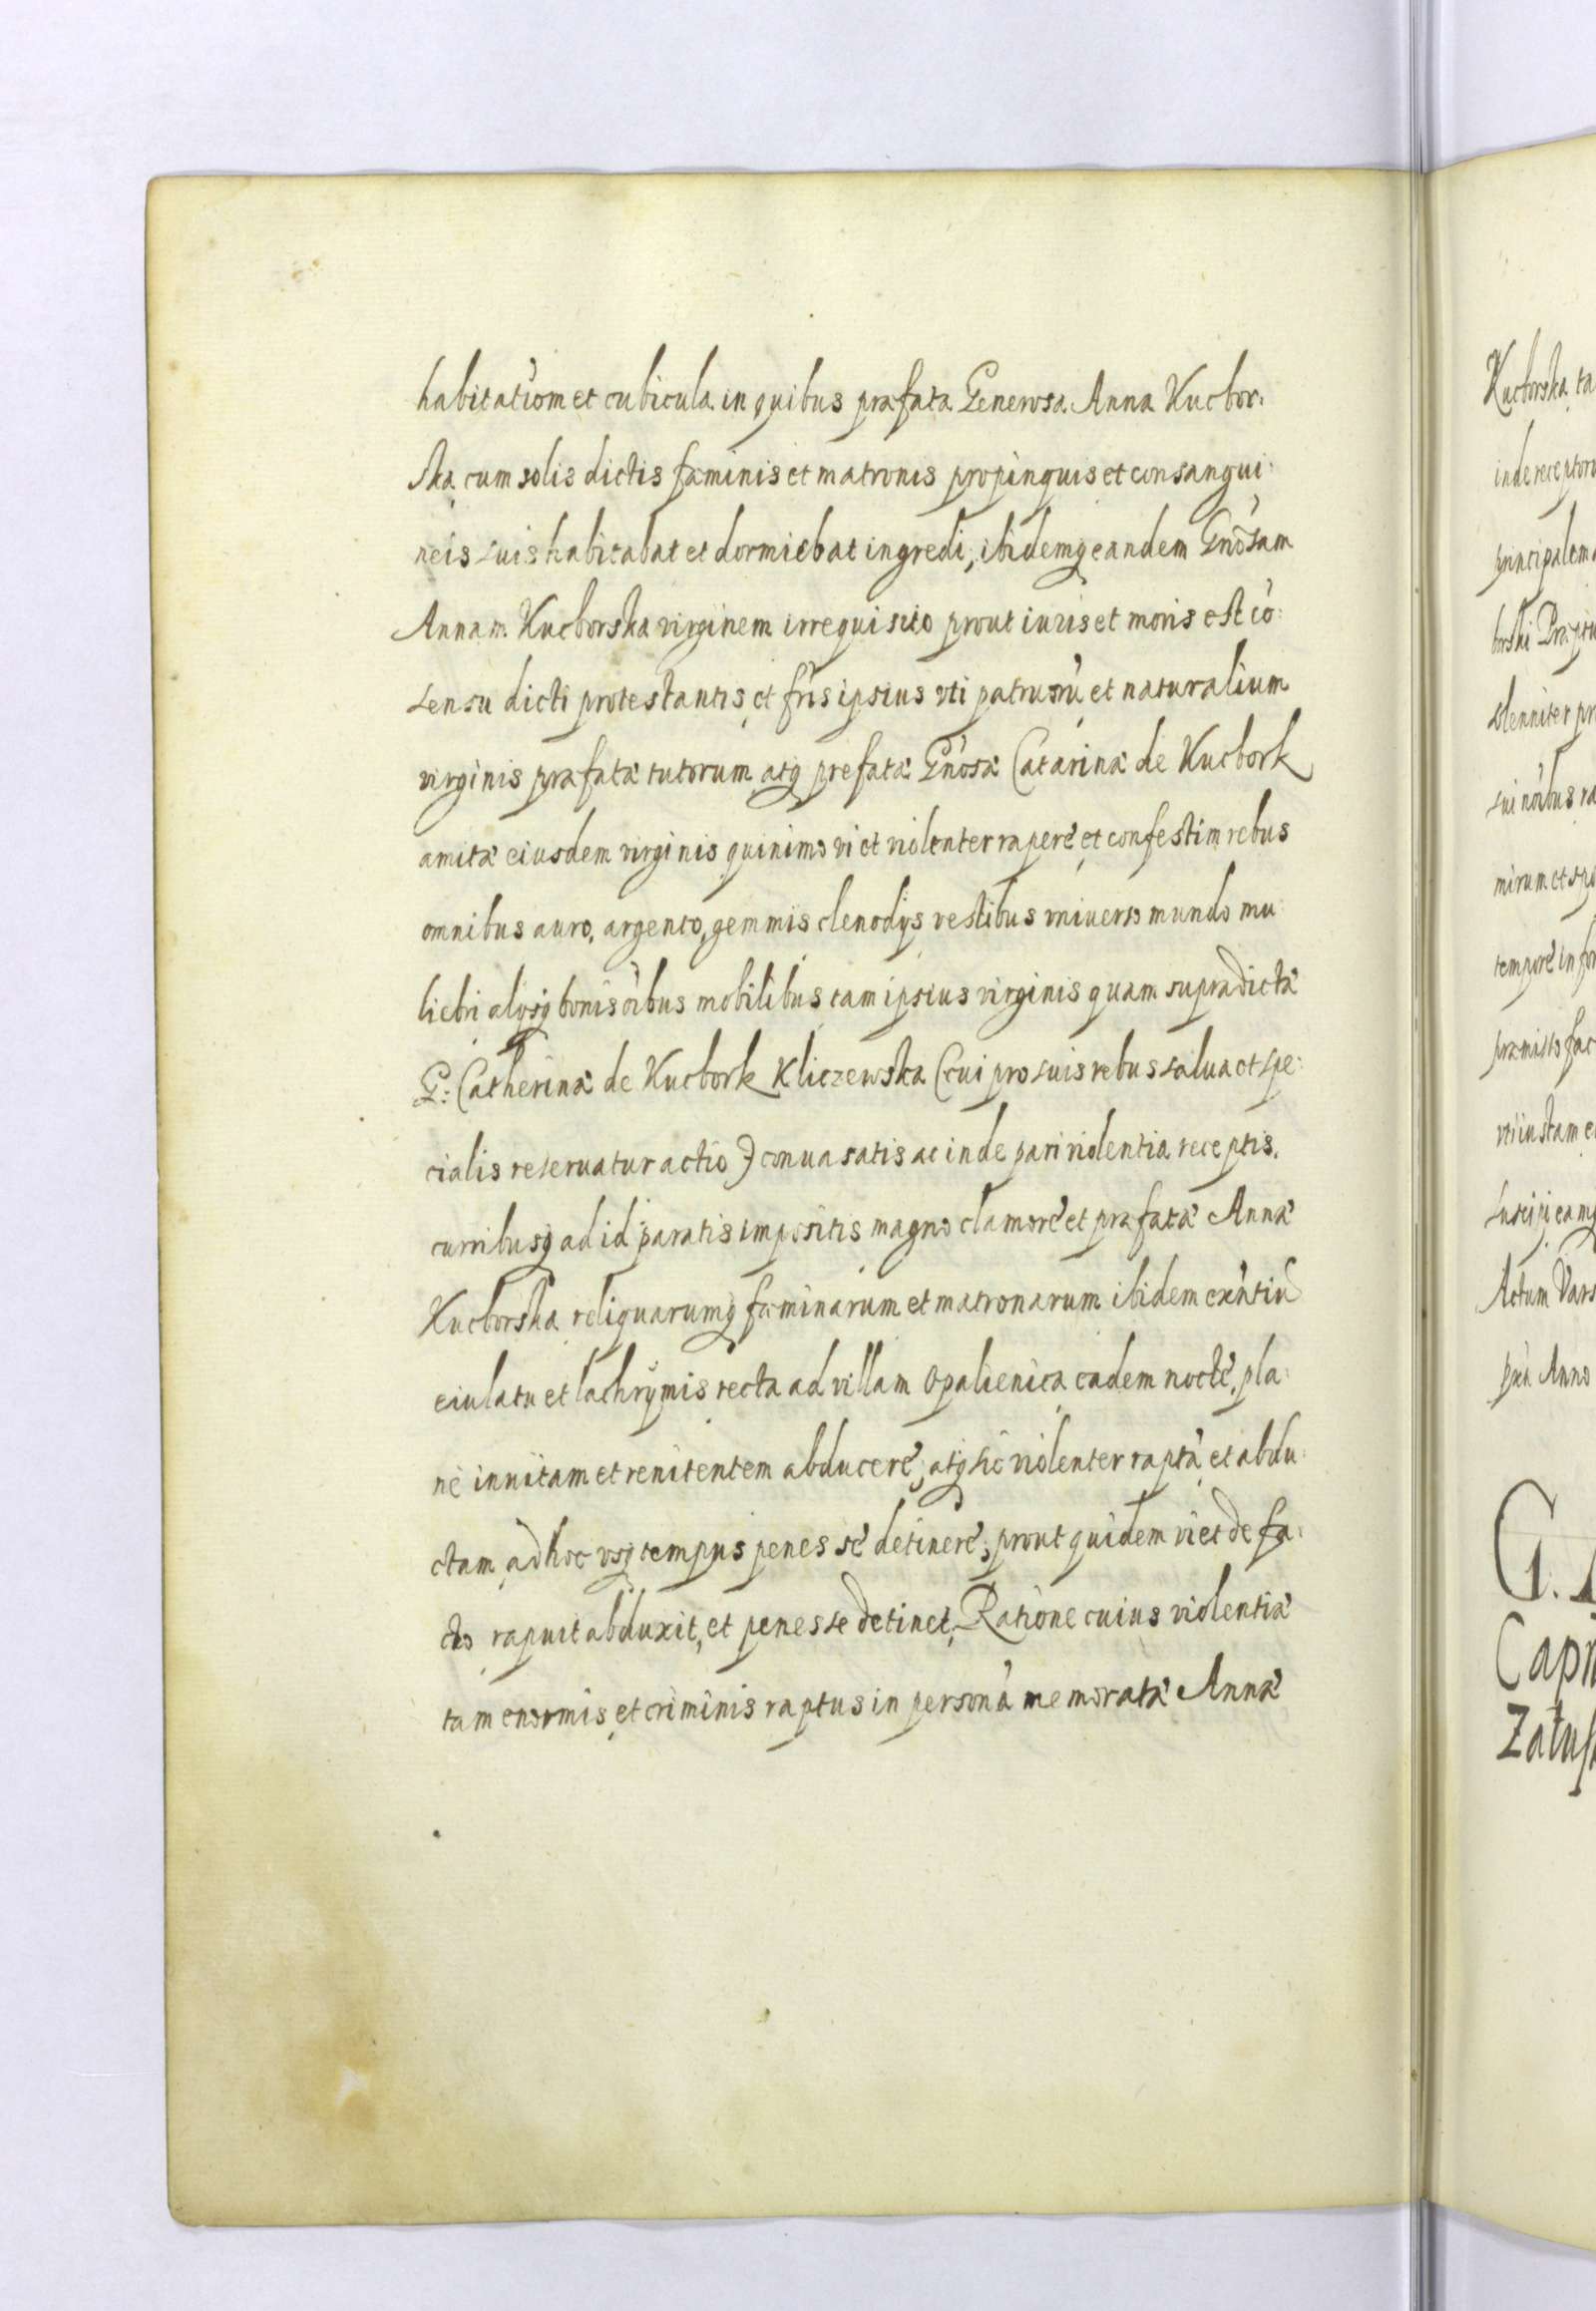 habitatiōm et cubicula in quibus præfata Generosa Anna Kucbor:
ska cum solis dictis fæminis et matronis propinquis et consangui:
neis suis habitabat et dormiebat ingredi, ibidemq eandem Gnosam
Annam Kucborska virginem irrequisito prout iuris et moris est cō:
sensu dicti protestantis et fris ipsius vti patruorū et naturalium
virginis præfatæ tutorum atq prefatæ Gnosæ Catarinæ de Kucbork
amitæ eiusdem virginis quinimo vi et violenter rapere et confestim rebus
omnibus auro, argento, gemmis clenodijs vestibus vniuerso mundo mu
liebri alijsq bonis oībus mobilibus tam ipsius virginis quam supradictæ
G: Catherinæ de Kucbork Kliczewska (cui pro suis rebus salua et spe:
cialis reseruatur actio) conuasatis ac inde pari violentia receptis.
curribusq ad id paratis impositis magno clamore et præfatæ Annæ
Kucborska reliquarumq fæminarum et matronarum ibidem exntiū
eiulatu et lachrÿmis recta ad villam Opalienica eadem nocte, pla:
ne inuitam et renitentem abducere, atq sic violenter raptā et abdu:
ctam ad hoc vsq tempus penes se detinere, prout quidem vi et de fa:
cto rapuit abduxit, et penes se detinet, Ratione cuius violentiæ
tam enormis et criminis raptus in personā memoratæ Annæ
Kucborska ta
inde receptor
principalem
borski
solenniter pr
sui noībus ra
mirum et spo
tempore in for
præmisso fac
vti iustam e
suscipi eamq
Actum Vars
Anno
G.
Capi
Załus